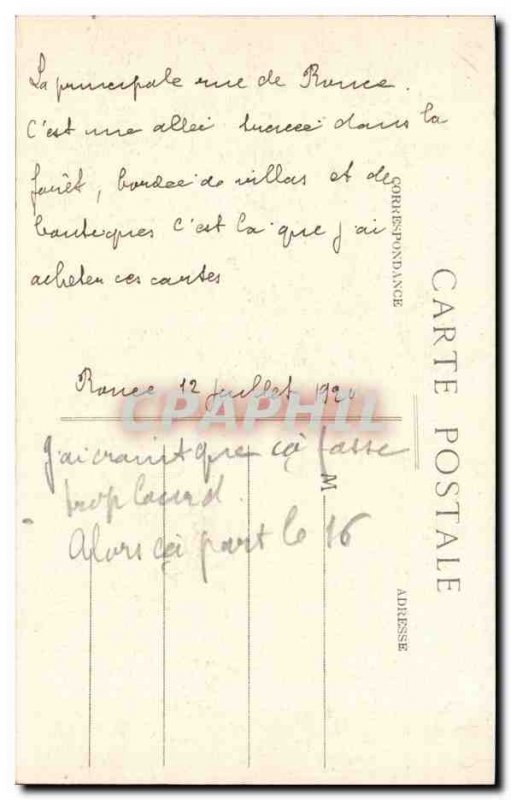 La principale rue de Ronce.
C'est une allei tracée dans la
forêt, bordée de villas et de
boutiques C'est la que j'ai
acheter ces cartes
Ronce 12 juillet 1920
J'ai craint que ça fasse
trop lourd.
Alors ça part le 16
CARTE POSTALE
CORRESPONDANCE
ADRESSE
M
CPAPHIL